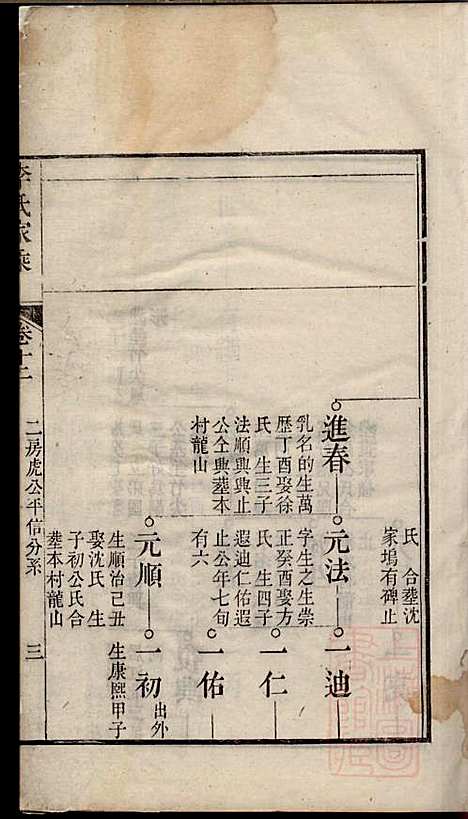 氏　合塟沈
家塢有碑止
進春
乳名的生萬
歴丁酉娶徐
氏　生三子
法順興興止
公仝興塟本
村龍山
元法
字生之生崇
正癸酉娶方
氏　生四子
迪仁佑遐遐
止公年七旬
有六
一迪
一仁
一佑
元順
生順治己丑
娶沈氏　生
子初公氏合
塟本村龍山
一初
出外
生康熈甲子
李氏家乘
卷十二
二房虎公平信分系
三